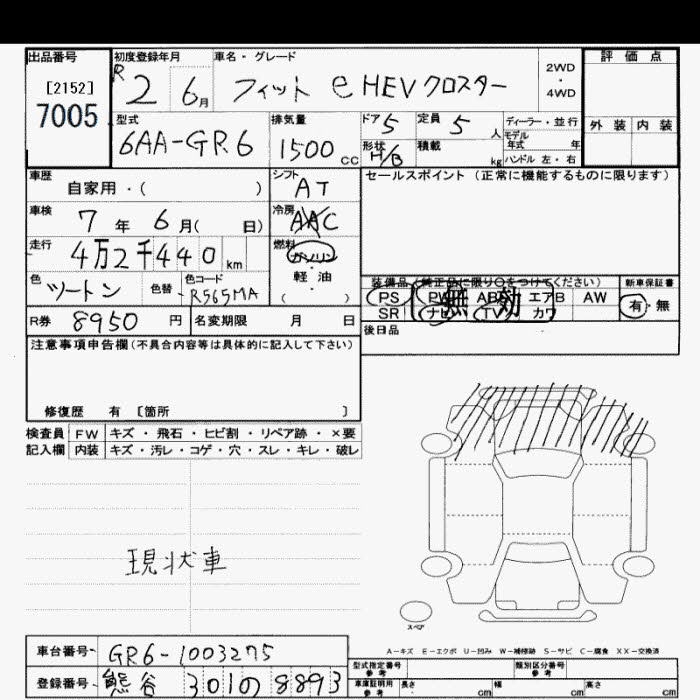 出品番号
[2152]
7005
初度登録年月
R2 6月
車名・グレード
フィット e HEV クロスター
2WD
・
4WD
評価点
外装 内装
型式
6AA-GR6
排気量
1500 cc
ドア 5
形状 H/B
定員 5 人
積載 kg
ディーラー・並行
モデル年式 年
ハンドル 左・右
車歴
自家用・( )
シフト
AT
セールスポイント (正常に機能するものに限ります)
車検
7年 6月( 日)
冷房
AAC
走行
4万2千440km
燃料
ガソリン
軽・油
( )
色
ツートン
色替
色コード
R565MA
装備品 (純正品に限り○をつけてください)
PS PW ABS エアB AW
SR ナビ TV カワ
無効
新車保証書
有・無
R券 8950円
名変期限 月 日
後日品
注意事項申告欄(不具合内容等は具体的に記入して下さい)
修復歴 有 [箇所 ]
検査員 FW キズ・飛石・ヒビ割・リペア跡・×要
記入欄 内装 キズ・汚レ・コゲ・穴・スレ・キレ・破レ
現状車
スペア
A-キズ E-エクボ U-凹み W-補修跡 S-サビ C-腐食 XX-交換済
車台番号 GR6-1003275
登録番号 熊谷 301の8893
型式指定番号
参考
類別区分番号
参考
車庫証明用
参考
長さ cm
幅 cm
高さ cm